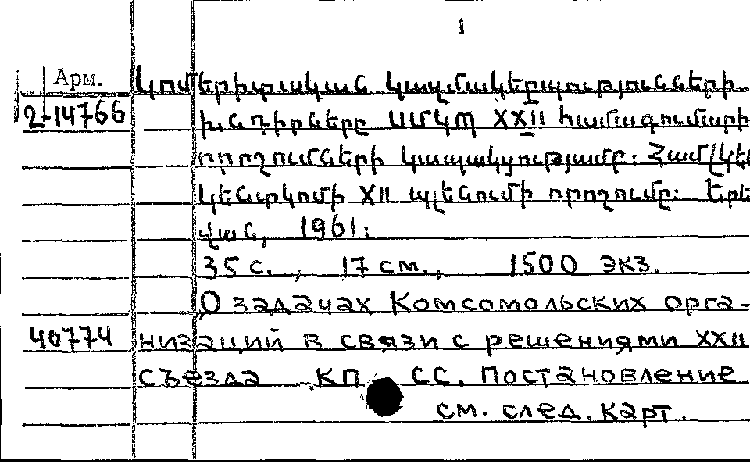 1
Арм. Կոմերիտական կազմակերպությունների
2-14766 խնդիրները ՍՄԿՊ XXII համագումարի
որոշումների կապակցությամբ: Համլկե
կենտկոմի XII պլենումի որոշումը: Երե
վան, 1961:
35 с., 17 см., 1500 экз.
О задачах Комсомольских орга-
40774 низаций в связи с решениями XXII
съезда КП СС. Постановление
см. след. карт.